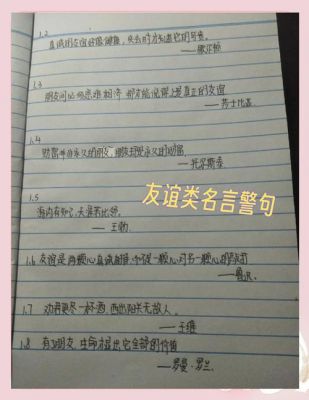 1.2
真诚的友谊好像健康，失去时才知道它的可贵。
——歌尔顿
1.3
朋友间必须患难相济，那才能说得上是真正的友谊
——莎士比亚
1.4
财富并非永久的朋友，朋友却是永久的财富。
——托尔斯泰
友谊类名言警句
1.5
海内存知己，天涯若比邻。
——王勃
1.6 友谊是两颗心真诚相待，而不是一颗心对另一颗心的敲打
——鲁迅
1.7 劝君更尽一杯酒，西出阳关无故人。
——王维
1.8 有了朋友，生命才显出它全部的价值
——罗曼·罗兰